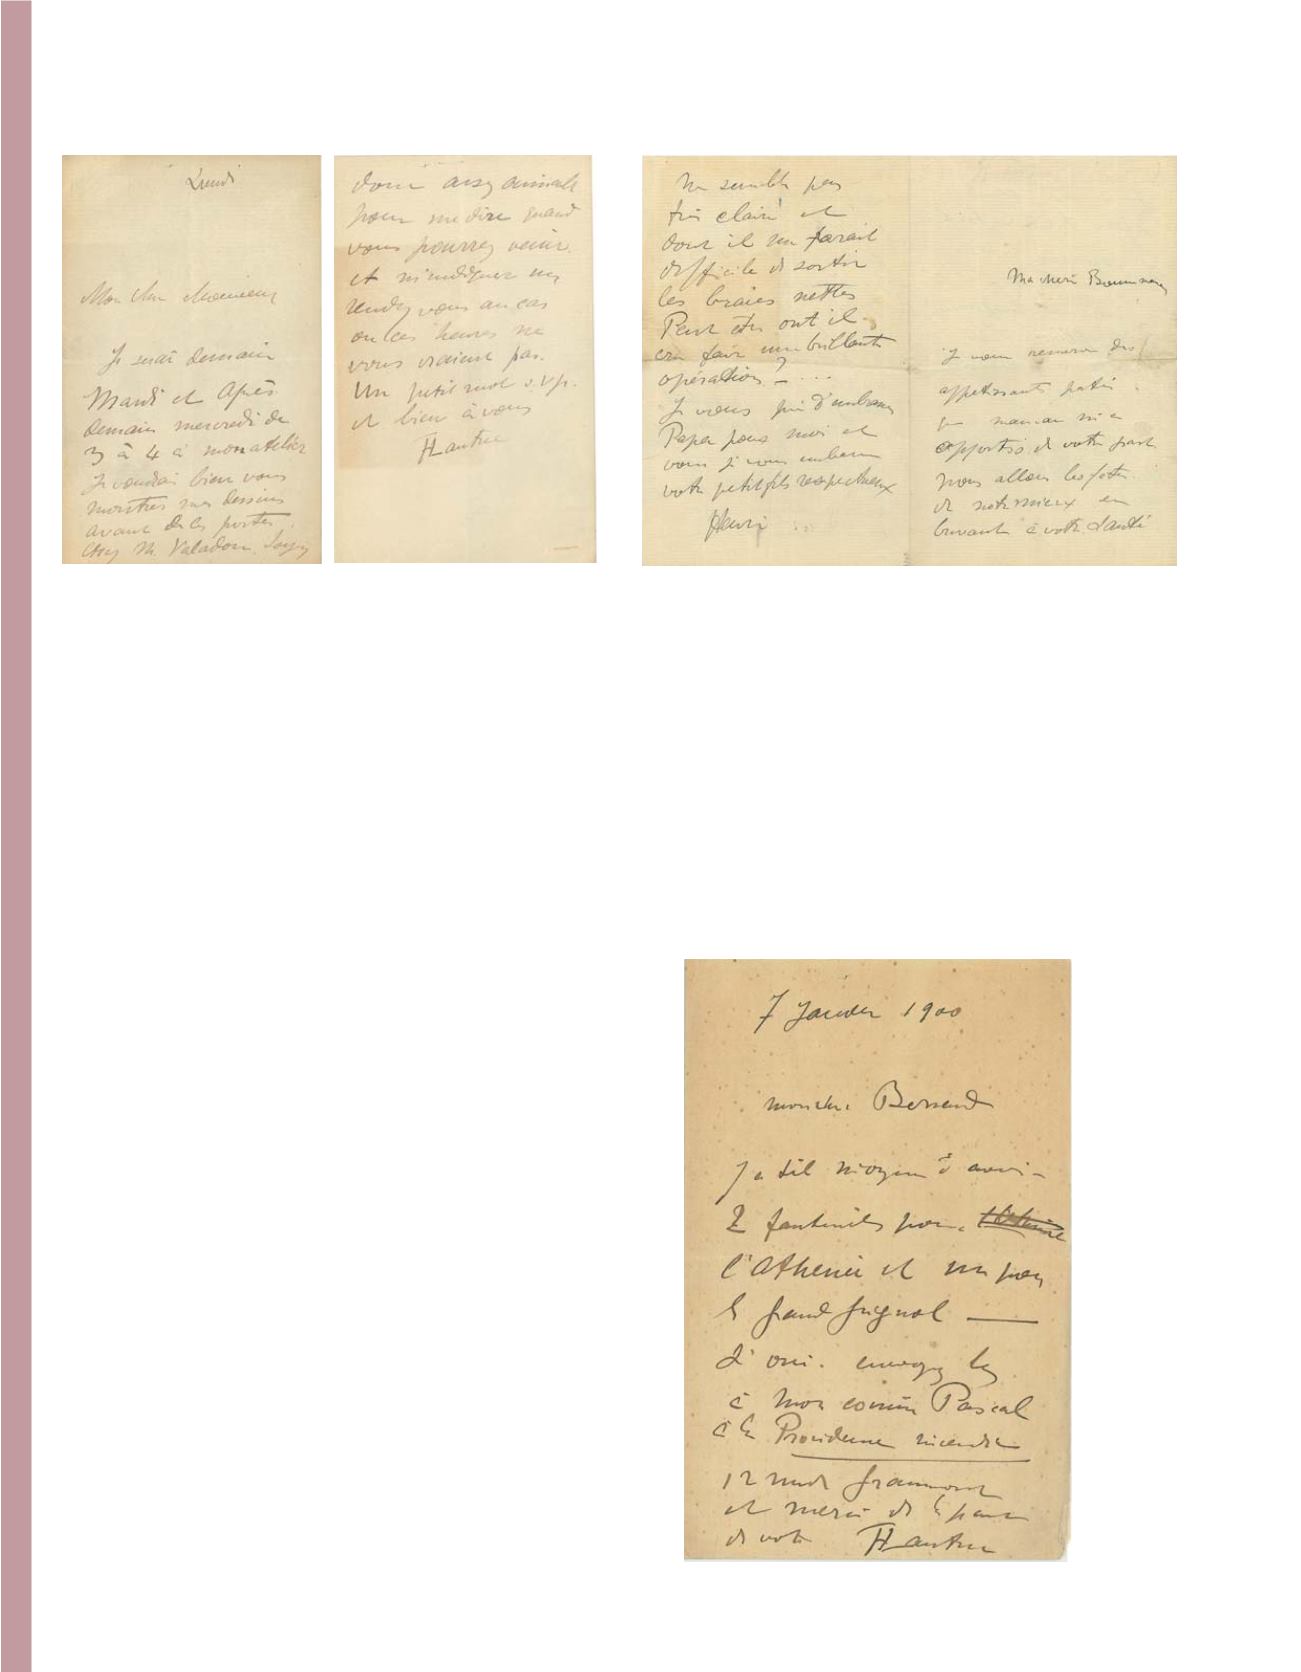 Lundi
Mon cher Monsieur
Je serai demain
Mardi et Après
demain mercredi de
3 à 4 à mon atelier
Je voudrai bien vous
montrer mes dessins
avant de les porter
chez M. Valadon. Soyez
donc assez aimable
pour me dire quand
vous pourrez venir.
et m'indiquer un
rendez vous au cas
ou ces heures ne
vous iraient pas.
Un petit mot s.v.p.
et bien à vous
HLautrec
me semble pas
très clair et
dont il me parait
difficile de sortir
les braies nettes
Peut être ont il
cru faire une brillante
opération ? _ ...
Je vous prie d'embrasser
Papa pour moi et
vous je vous embrasse
votre petit fils respectueux
Henri
Ma chère Bonne maman
Je vous remercie des
appétissants patés
que maman m'a
apportés de votre part
nous allons les fêter
de notre mieux en
buvant à votre santé
7 Janvier 1900
mon cher Bernard
Y a til moyen d'avoir
2 fauteuils pour
l'Athenée et un pour
le grand guignol —
Si oui. envoyez les
à mon cousin Pascal
à la Providence incendie
12 rue de Grammont
et merci de la part
de votre HLautrec